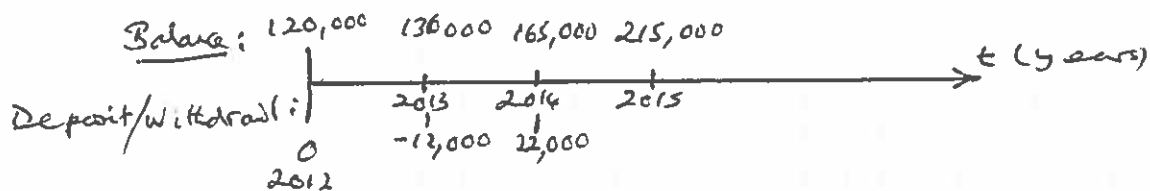 Balance: 120,000 136000 165,000 215,000
t (years)
Deposit/withdrawl: 2013 2014 2015
0 -12,000 22,000
2012